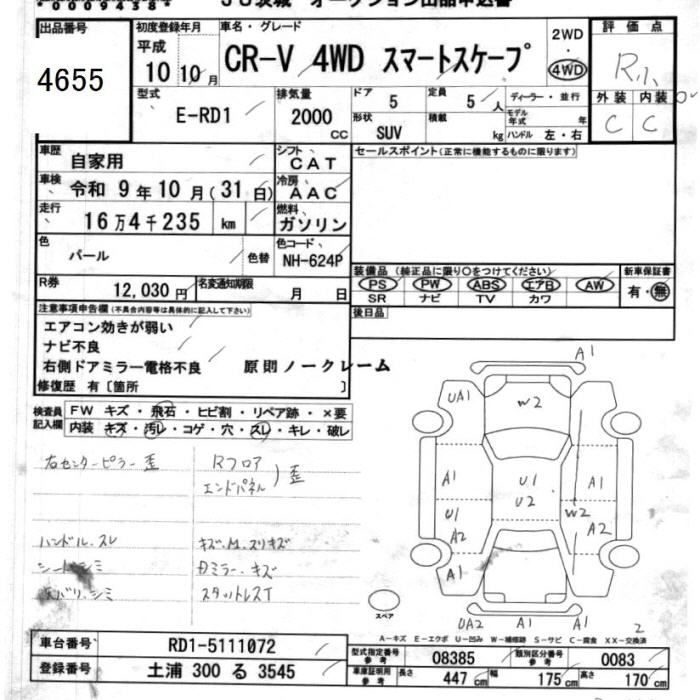 *00094384*
JU茨城 オークション出品申込書
出品番号
4655
初度登録年月
平成
10 10 月
車名・グレード
CR-V 4WD スマートスケープ
2WD
・
4WD
評価点
R
外装 内装
C C
型式
E-RD1
排気量
2000
CC
ドア 5
定員 5 人
形状 SUV
積載 kg
ディーラー・並行
モデル年式 年
ハンドル 左・右
車歴
自家用
シフト
CAT
車検
令和 9 年 10 月 ( 31 日)
冷房
AAC
走行
16万4千235 km
燃料
ガソリン
色
パール
色替
色コード
NH-624P
R券
12,030 円
名変通知期限
月 日
セールスポイント(正常に機能するものに限ります)
装備品 (純正品に限り○をつけてください)
PS PW ABS エアB AW
SR ナビ TV カワ
新車保証書
有・無
後日品
注意事項申告欄(不具合内容等は具体的に記入して下さい)
エアコン効きが弱い
ナビ不良
右側ドアミラー電格不良
原則ノークレーム
修復歴 有〔箇所 〕
検査員記入欄
FW キズ・飛石・ヒビ割・リペア跡・×要
内装 キズ・汚レ・コゲ・穴・スレ・キレ・破レ
右センターピラー 歪
Rフロア
エンドパネル ) 歪
ハンドル.スレ
シート.シミ
キズ.M.スリキズ
Dミラー.キズ
スタットレスT
A1
UA1
W2
A1
U1
U2
A1
U1
A2
W2
A2
A1
UA2
A1
A1
2
スペア
A-キズ E-エクボ U-凹み W-補修跡 S-サビ C-腐食 XX-交換済
車台番号
RD1-5111072
登録番号
土浦 300 る 3545
型式指定番号
参考
08385
類別区分番号
参考
0083
車庫証明用
参考
長さ 447 cm
幅 175 cm
高さ 170 cm